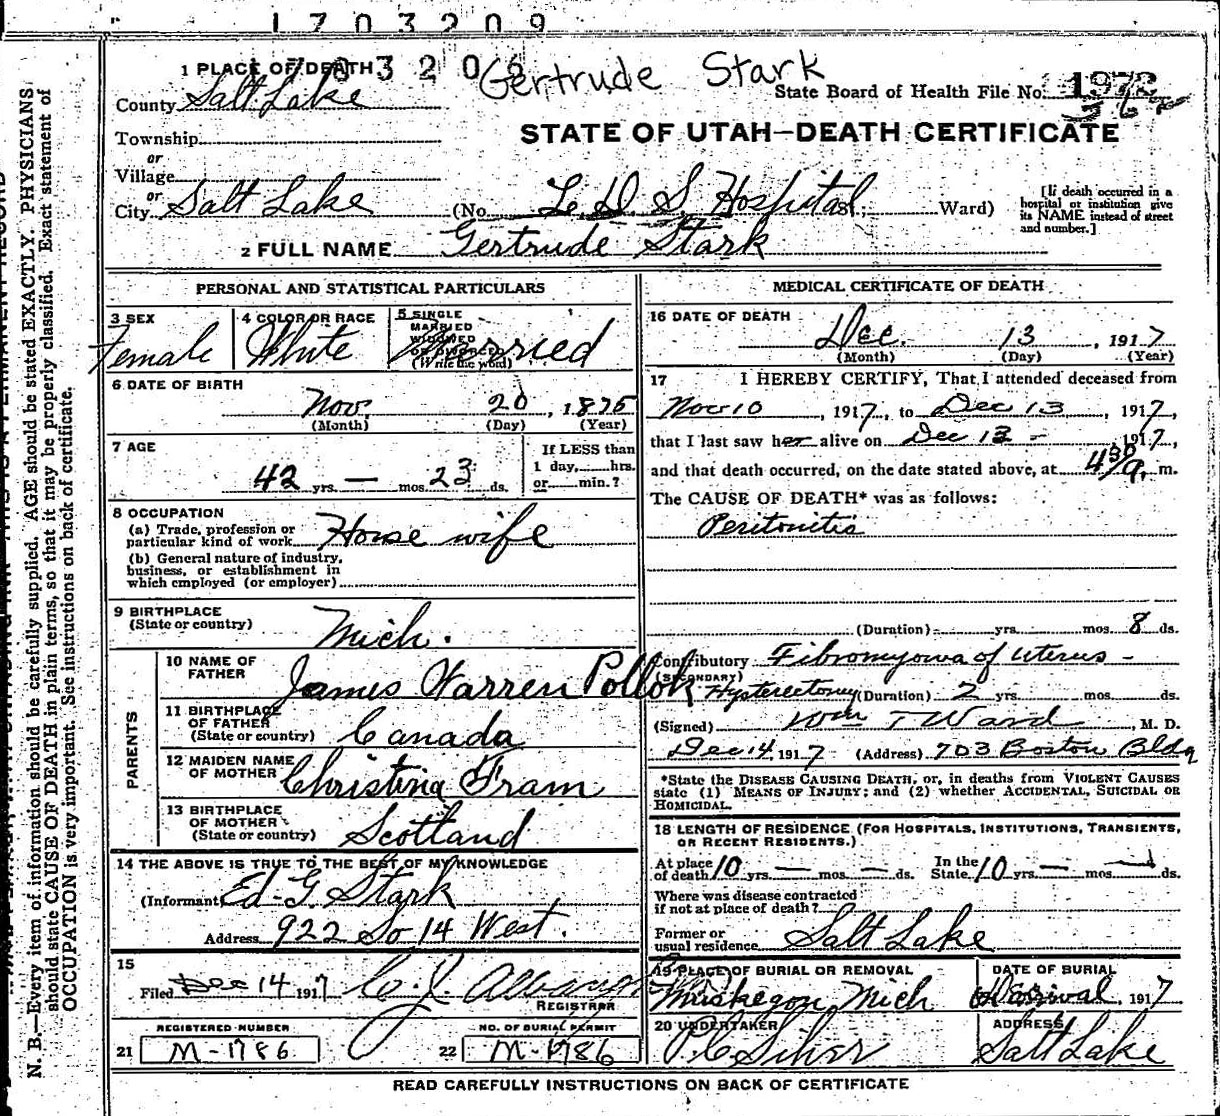 1703209
1 PLACE OF DEATH 703206 Gertrude Stark
County Salt Lake State Board of Health File No. 1972
Township
or
Village
or
City Salt Lake
STATE OF UTAH—DEATH CERTIFICATE
(No. L. D. S. Hospital St.; Ward)
[If death occurred in a
hospital or institution give
its NAME instead of street
and number.]
2 FULL NAME Gertrude Stark
PERSONAL AND STATISTICAL PARTICULARS
3 SEX
Female
4 COLOR OR RACE
White
5 SINGLE
MARRIED
WIDOWED
OR DIVORCED
(Write the word)
Married
6 DATE OF BIRTH
Nov. 20, 1875
(Month) (Day) (Year)
7 AGE
42 yrs. — mos. 23 ds.
If LESS than
1 day, hrs.
or min.?
8 OCCUPATION
(a) Trade, profession or
particular kind of work House wife
(b) General nature of industry,
business, or establishment in
which employed (or employer)
9 BIRTHPLACE
(State or country) Mich.
PARENTS
10 NAME OF
FATHER James Warren Pollok
11 BIRTHPLACE
OF FATHER
(State or country) Canada
12 MAIDEN NAME
OF MOTHER Christina Fram
13 BIRTHPLACE
OF MOTHER
(State or country) Scotland
14 THE ABOVE IS TRUE TO THE BEST OF MY KNOWLEDGE
(Informant Ed. G. Stark
Address 922 So 14 West.
15
Filed Dec 14 1917 C. J.
REGISTRAR
REGISTERED NUMBER
21 M-1786
NO. OF BURIAL PERMIT
22 M-1786
MEDICAL CERTIFICATE OF DEATH
16 DATE OF DEATH
Dec. 13, 1917
(Month) (Day) (Year)
17 I HEREBY CERTIFY, That I attended deceased from
Nov 10, 1917, to Dec 13, 1917,
that I last saw her alive on Dec 13 - 1917,
and that death occurred, on the date stated above, at 4 30 m.
The CAUSE OF DEATH* was as follows:
Peritonitis
(Duration) yrs. mos. 8 ds.
Contributory Fibromyoma of Uterus -
(SECONDARY)
Hysterectomy (Duration) 2 yrs. mos. ds.
(Signed) Wm T Ward, M. D.
Dec 14, 1917 (Address) 703 Boston Bldg
*State the DISEASE CAUSING DEATH, or, in deaths from VIOLENT CAUSES
state (1) MEANS OF INJURY; and (2) whether ACCIDENTAL, SUICIDAL OR
HOMICIDAL.
18 LENGTH OF RESIDENCE (FOR HOSPITALS, INSTITUTIONS, TRANSIENTS,
OR RECENT RESIDENTS.)
At place
of death 10 yrs. — mos. — ds.
In the
State 10 yrs. — mos. — ds.
Where was disease contracted
if not at place of death?
Former or
usual residence Salt Lake
19 PLACE OF BURIAL OR REMOVAL
Muskegon, Mich
DATE OF BURIAL
Arrival, 1917
20 UNDERTAKER
P. C. Silver
ADDRESS
Salt Lake
READ CAREFULLY INSTRUCTIONS ON BACK OF CERTIFICATE
N. B.—Every item of information should be carefully supplied. AGE should be stated EXACTLY. PHYSICIANS
should state CAUSE OF DEATH in plain terms, so that it may be properly classified. Exact statement of
OCCUPATION is very important. See instructions on back of certificate.